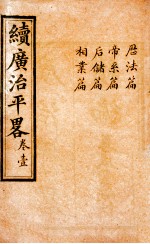 曆法篇
帝系篇
后儲篇
相業篇
續廣治平畧 卷壹